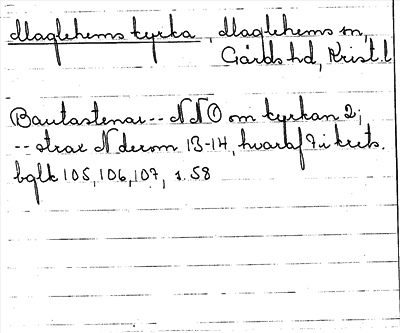 Maglehems kyrka, Maglehems sn,
Gärds hd, Krist. l.
Bautastenar -- NNO om kyrkan 2;
-- strax N derom 13-14, hvaraf 7 i krets.
bglk 105, 106, 107, s. 58